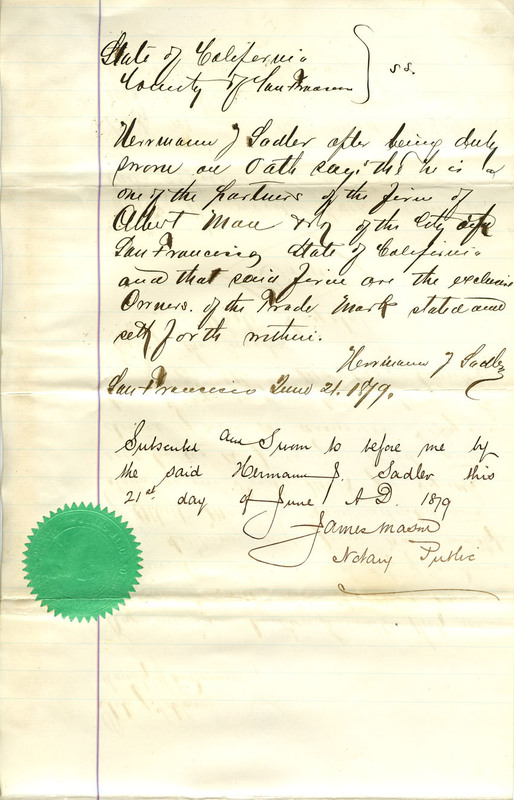 State of California
County of San Francisco } ss.
Herrmann J Sadler after being duly
sworn on oath says: that he is
one of the partners of the firm of
Albert Mau & Co of the City of
San Francisco, State of California
and that said firm are the exclusive
Owners of the Trade Mark stated and
set forth within.
Herrmann J Sadler
San Francisco June 21. 1879.
Subscribed and Sworn to before me by
the said Hermann J. Sadler this
21st day of June, A.D. 1879
James Mason
Notary Public